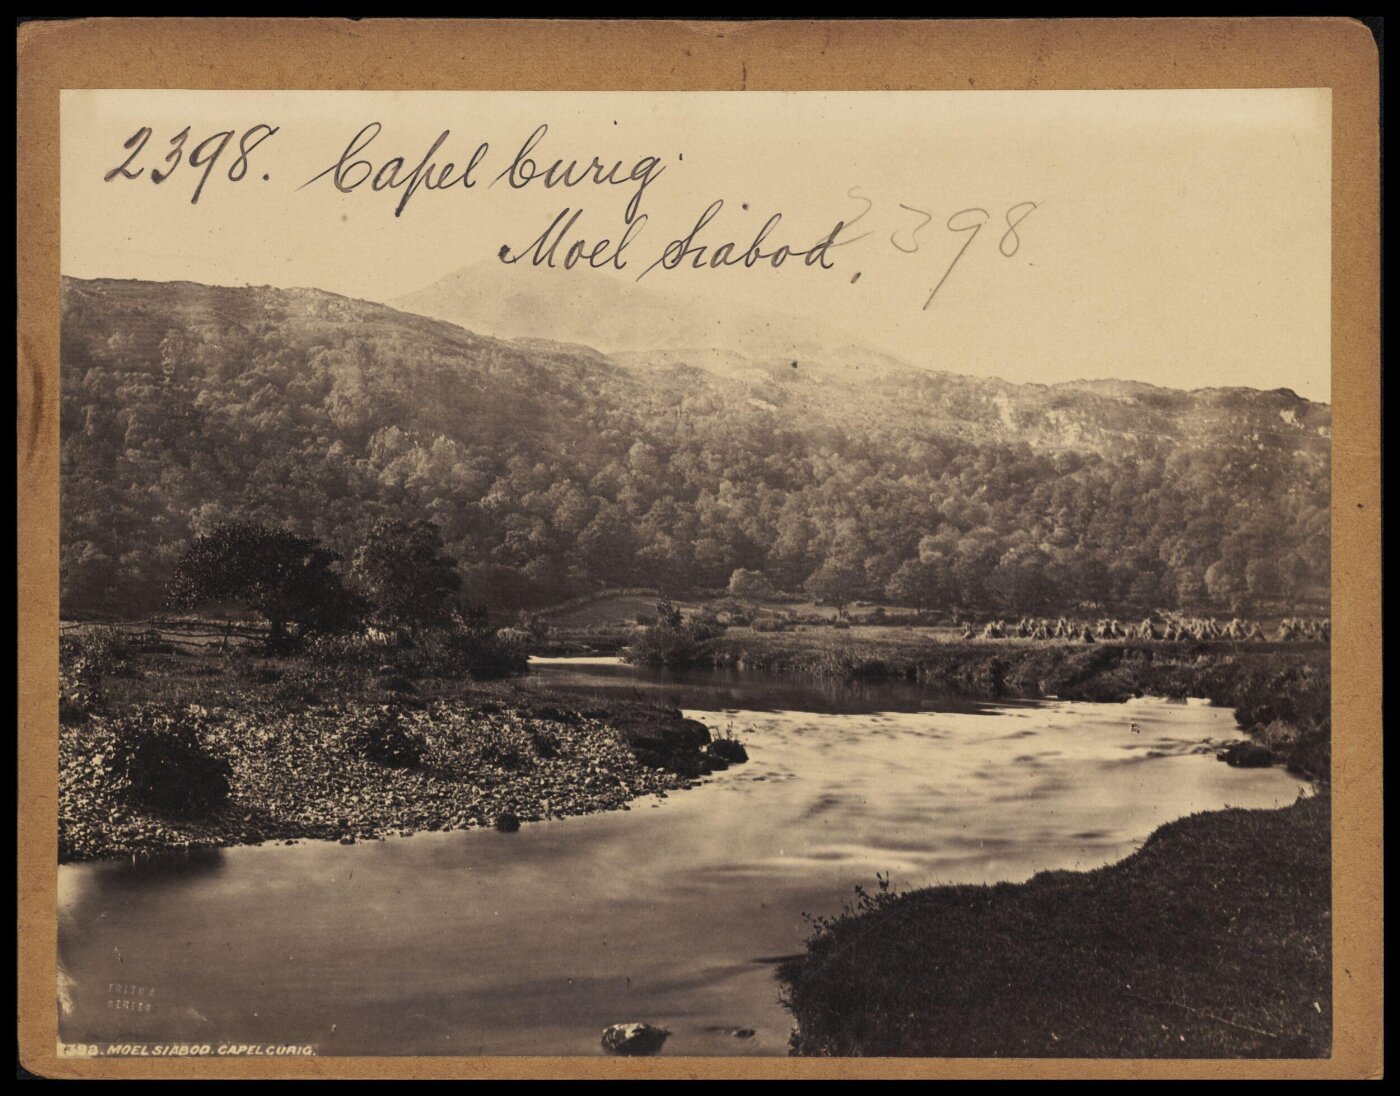 2398. Capel Curig
Moel Siabod.
2398
FRITH'S
SERIES
2398. MOEL SIABOD. CAPEL CURIG.